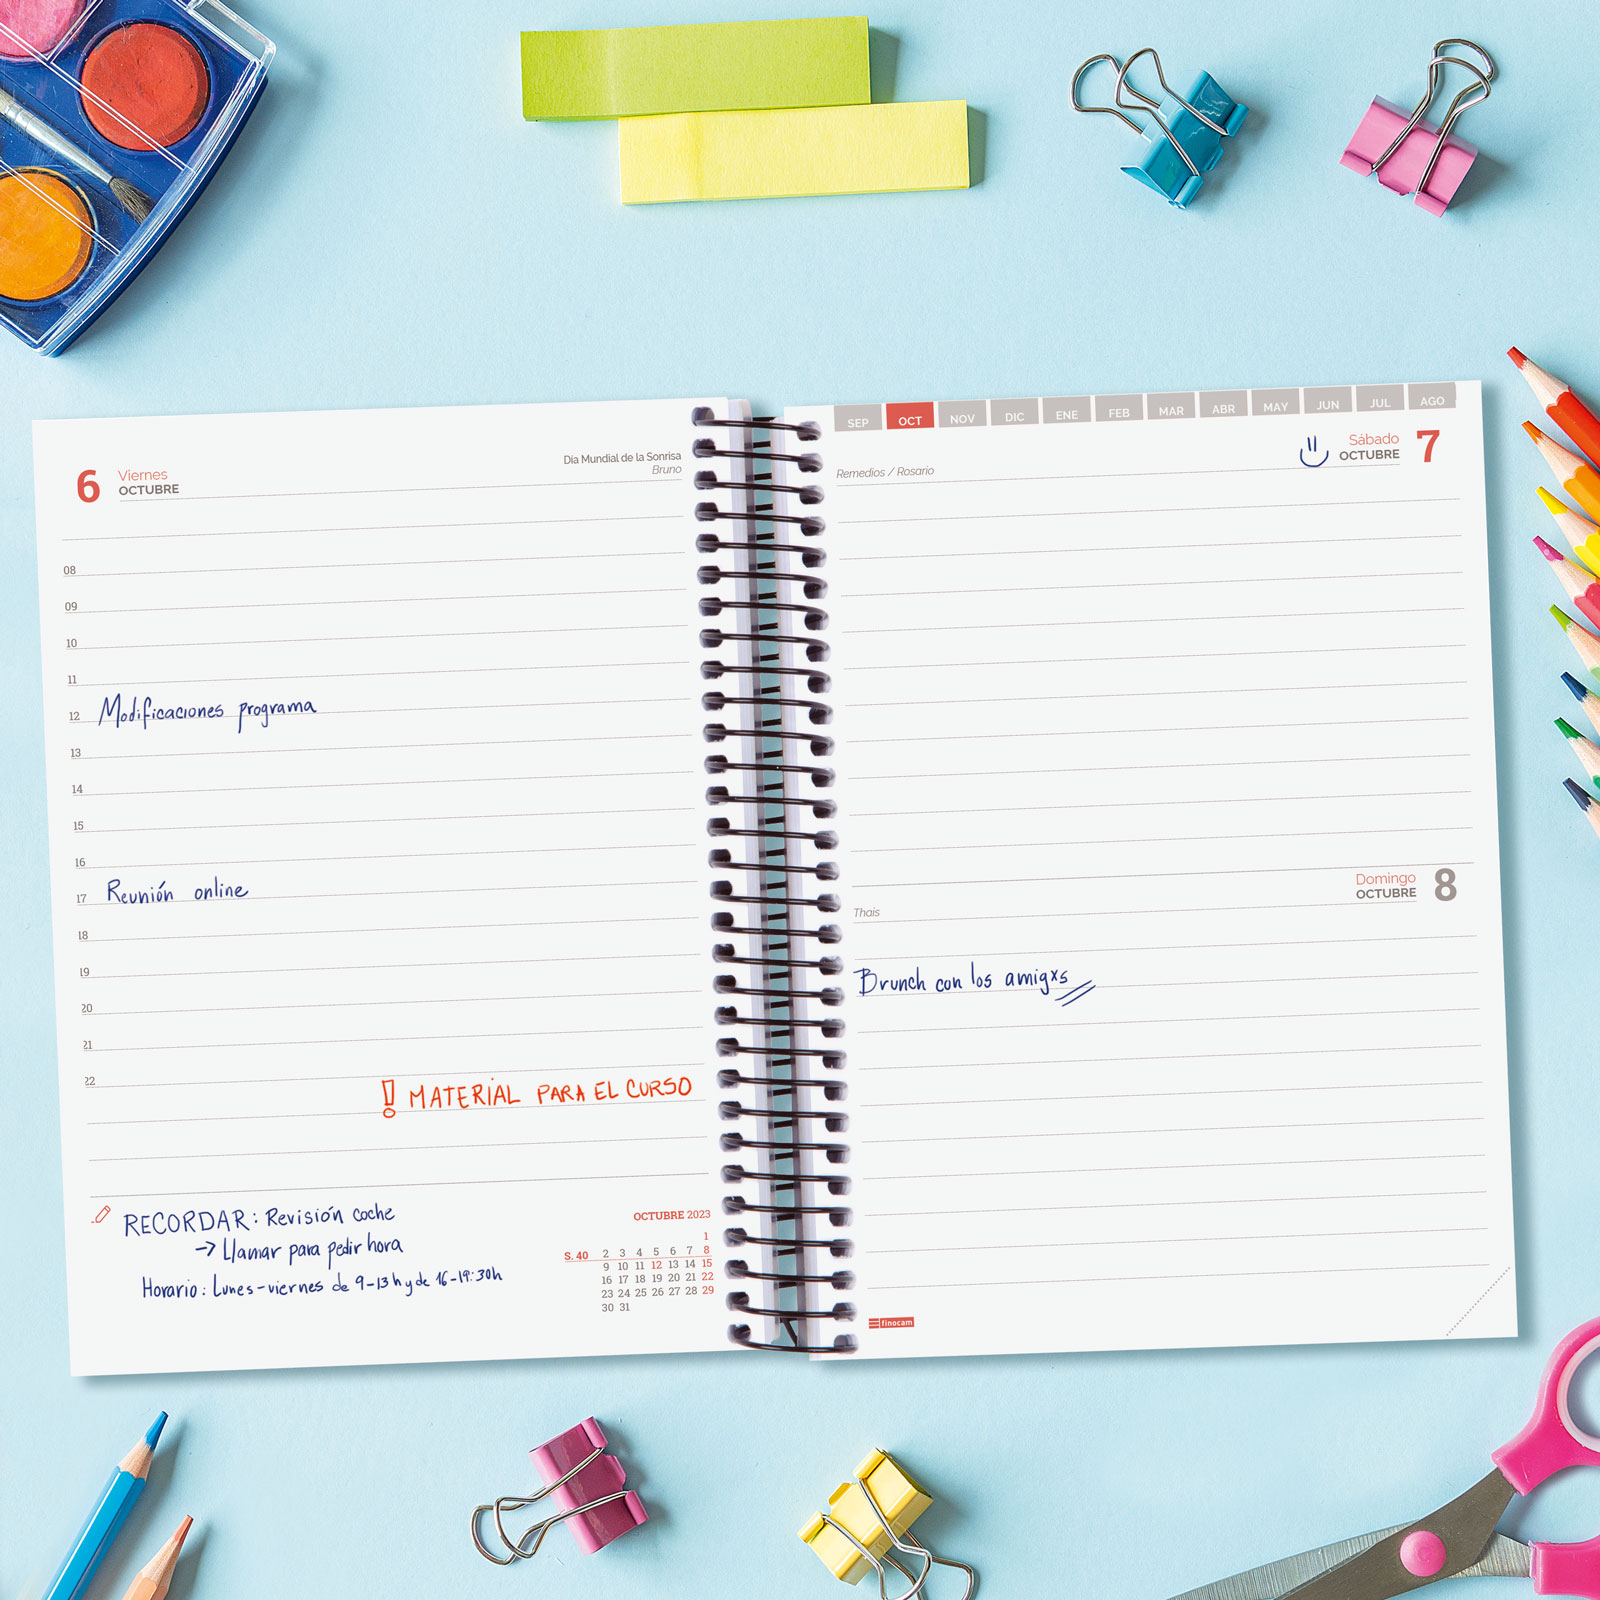 6 Viernes
OCTUBRE
Día Mundial de la Sonrisa
Bruno
08
09
10
11
12 Modificaciones programa
13
14
15
16
17 Reunión online
18
19
20
21
22
! MATERIAL PARA EL CURSO
RECORDAR: Revisión coche
→ Llamar para pedir hora
Horario: Lunes-viernes de 9-13h y de 16-19:30h
OCTUBRE 2023
1
S. 40 2 3 4 5 6 7 8
9 10 11 12 13 14 15
16 17 18 19 20 21 22
23 24 25 26 27 28 29
30 31
SEP OCT NOV DIC ENE FEB MAR ABR MAY JUN JUL AGO
Remedios / Rosario
Sábado 7
OCTUBRE
Domingo 8
OCTUBRE
Thais
Brunch con los amigxs
finocam